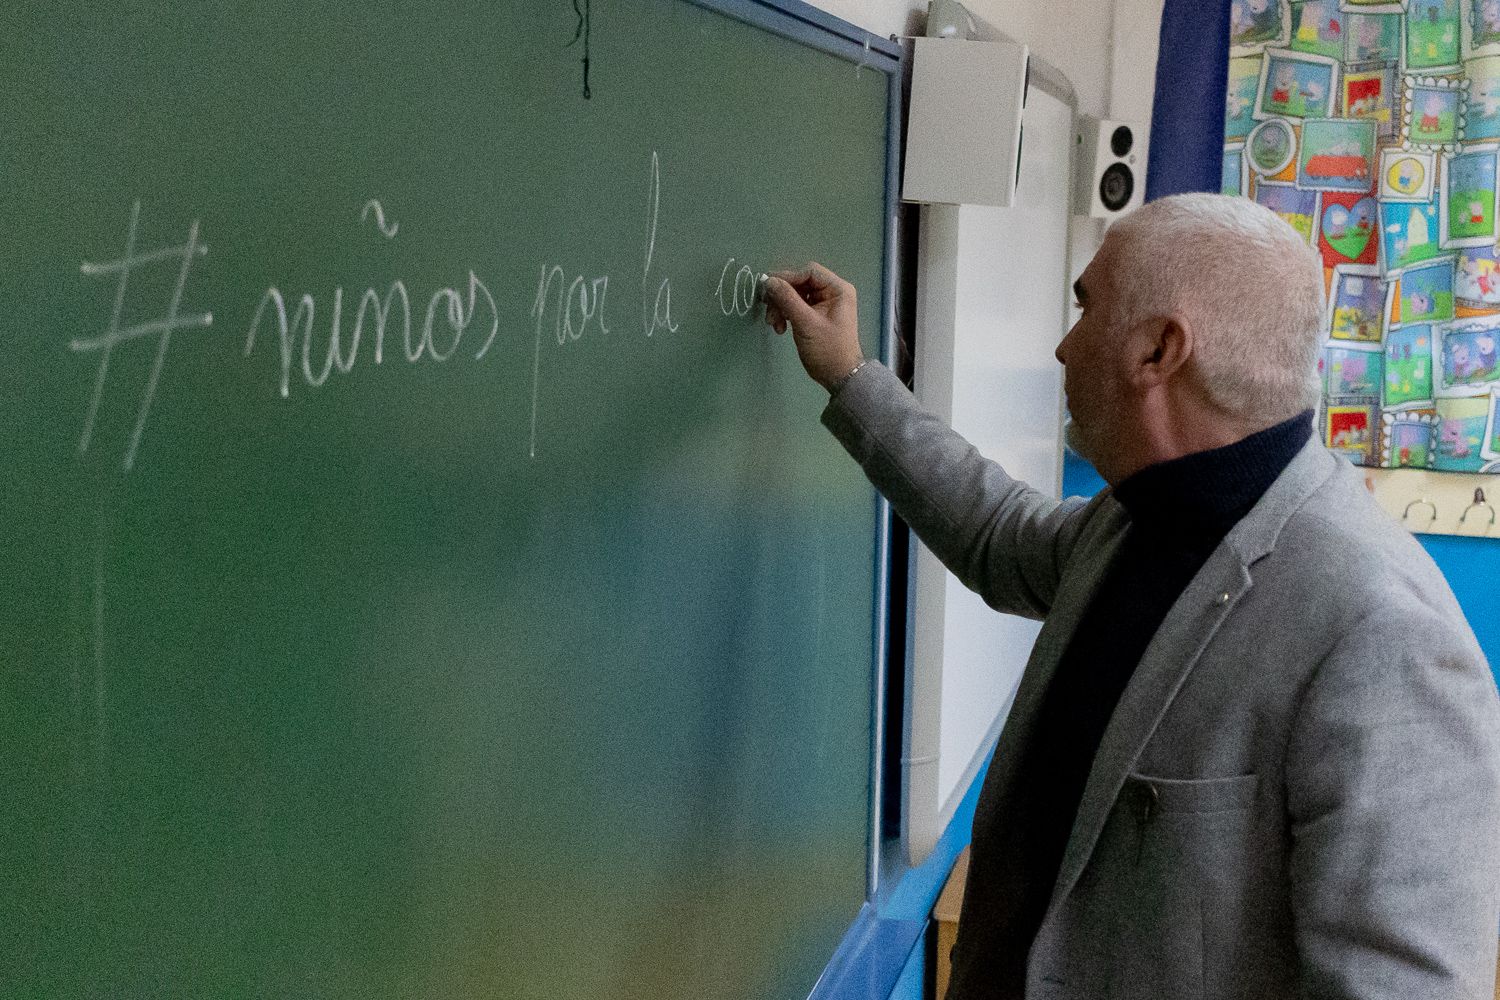 # niños por la co